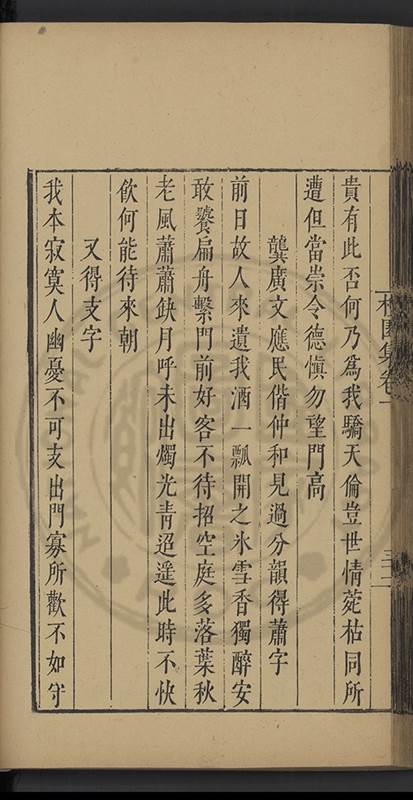 貴有此否何乃爲我驕天倫豈世情菀枯同所
遭但當崇令德愼勿望門高
龔廣文應民偕仲和見過分韻得蕭字
前日故人來遺我酒一瓢開之氷雪香獨醉安
敢饕扁舟繫門前好客不待招空庭多落葉秋
老風蕭蕭缺月呼未出燭光靑迢遥此時不快
飲何能待來朝
又得支字
我本寂寞人幽憂不可支出門寡所歡不如守
園集卷一
三二